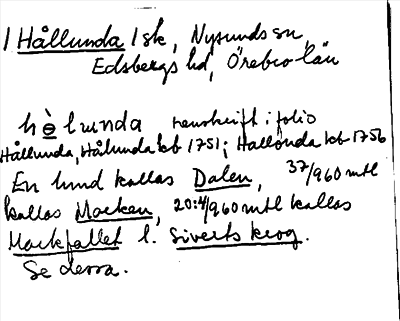 / Hållunda / sk, Nysunds sn,
Edsbergs hd, Örebro län
renskrift i folio
Hållunda, Hålunda kb 1751; Hallonda kb 1756
En lund kallas Dalen, 37/960 mtl
kallas Mocken, 20:4/960 mtl kallas
Mockfallet l. Siverts krog.
Se dessa.